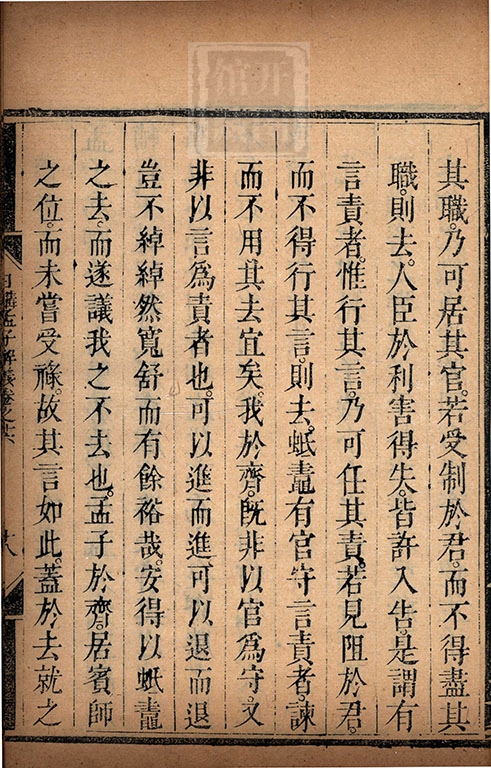 其職。乃可居其官。若受制於君。而不得盡其
職。則去。人臣於利害得失。皆許入告。是謂有
言責者。惟行其言。乃可任其責。若見阻於君。
而不得行其言。則去。蚳鼃有官守言責者。諫
而不用。其去宜矣。我於齊。既非以官為守。又
非以言為責者也。可以進而進。可以退而退。
豈不綽綽然寬舒而有餘裕哉。安得以蚳鼃
之去。而遂議我之不去也。孟子於齊。居賓師
之位。而未嘗受祿。故其言如此。蓋於去就之
日講孟子解義卷之十六